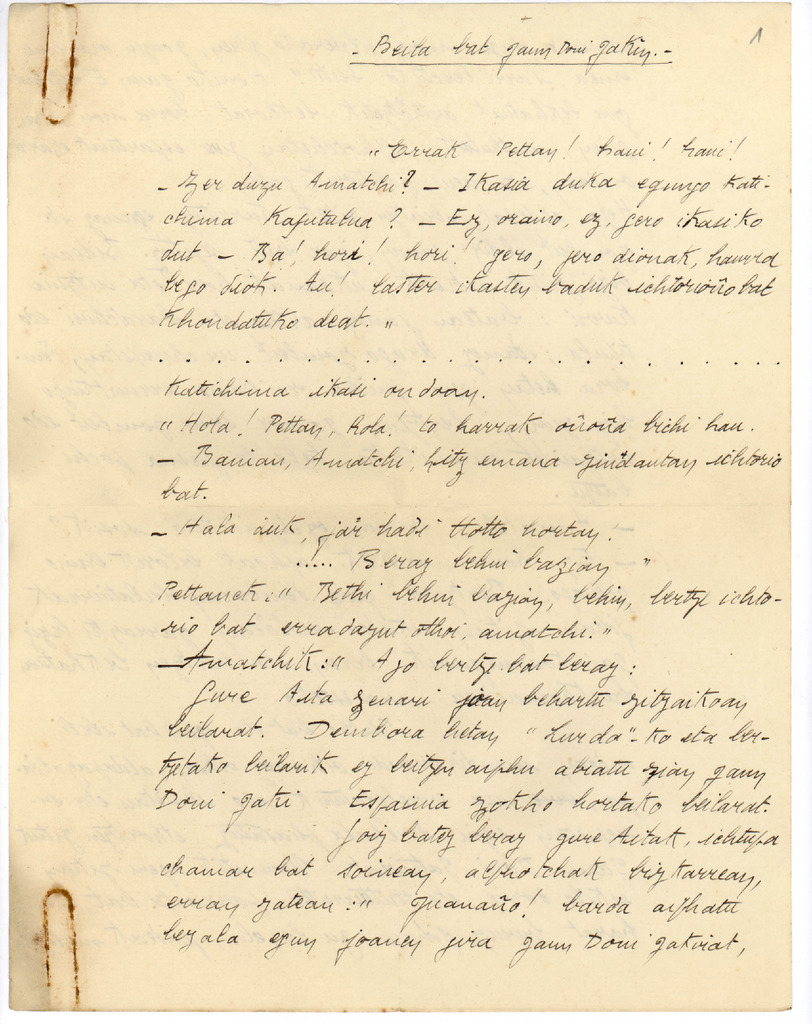 - Beila bat Jaun Doni Jakin. -
1
" Errak Pettan! haui! haui!
- Zer duzu Amatchi? - Ikasia duka egungo kati-
chima kapitulua? - Ez, oraino, ez, gero ikasiko
dut - Ba! hori! hori! gero, gero dionak, haurra
bego diok. Au! laster ikasten baduk ichtorioño bat
khondatuko deat. "
. . . . . . . . . . . . . . . . . . .
Katichima ikasi ondoan.
" Hola! Pettan, hola! to harrak oñoña bichi hau.
- Bainan, Amatchi, hitz emana zindautan ichtorio
bat.
- Hala duk, jar hadi ttotto hortan.
..... Beraz behin bazian "
Pettanek: " Bethi behin bazian, behin, bertze ichto-
rio bat erradazut othoi, amatchi. "
- Amatchik: " Ago bertze bat beraz:
Gure Aita zenari joan behartu zitzaikoan
beilarat. Dembora hetan "Lurda"-ko eta ber-
tzetako beilarik ez beitzen aiphu abiatu zian Jaun
Doni Jaki Espainia zokho hortako beilarat.
Goiz batez beraz gure Aitak, ichtupa
chamar bat soinean, alphotchak bizkarrean,
erran zatean: " Guanaño! barda aiphatu
bezala egun joanen gira Jaun Doni Jakirat,